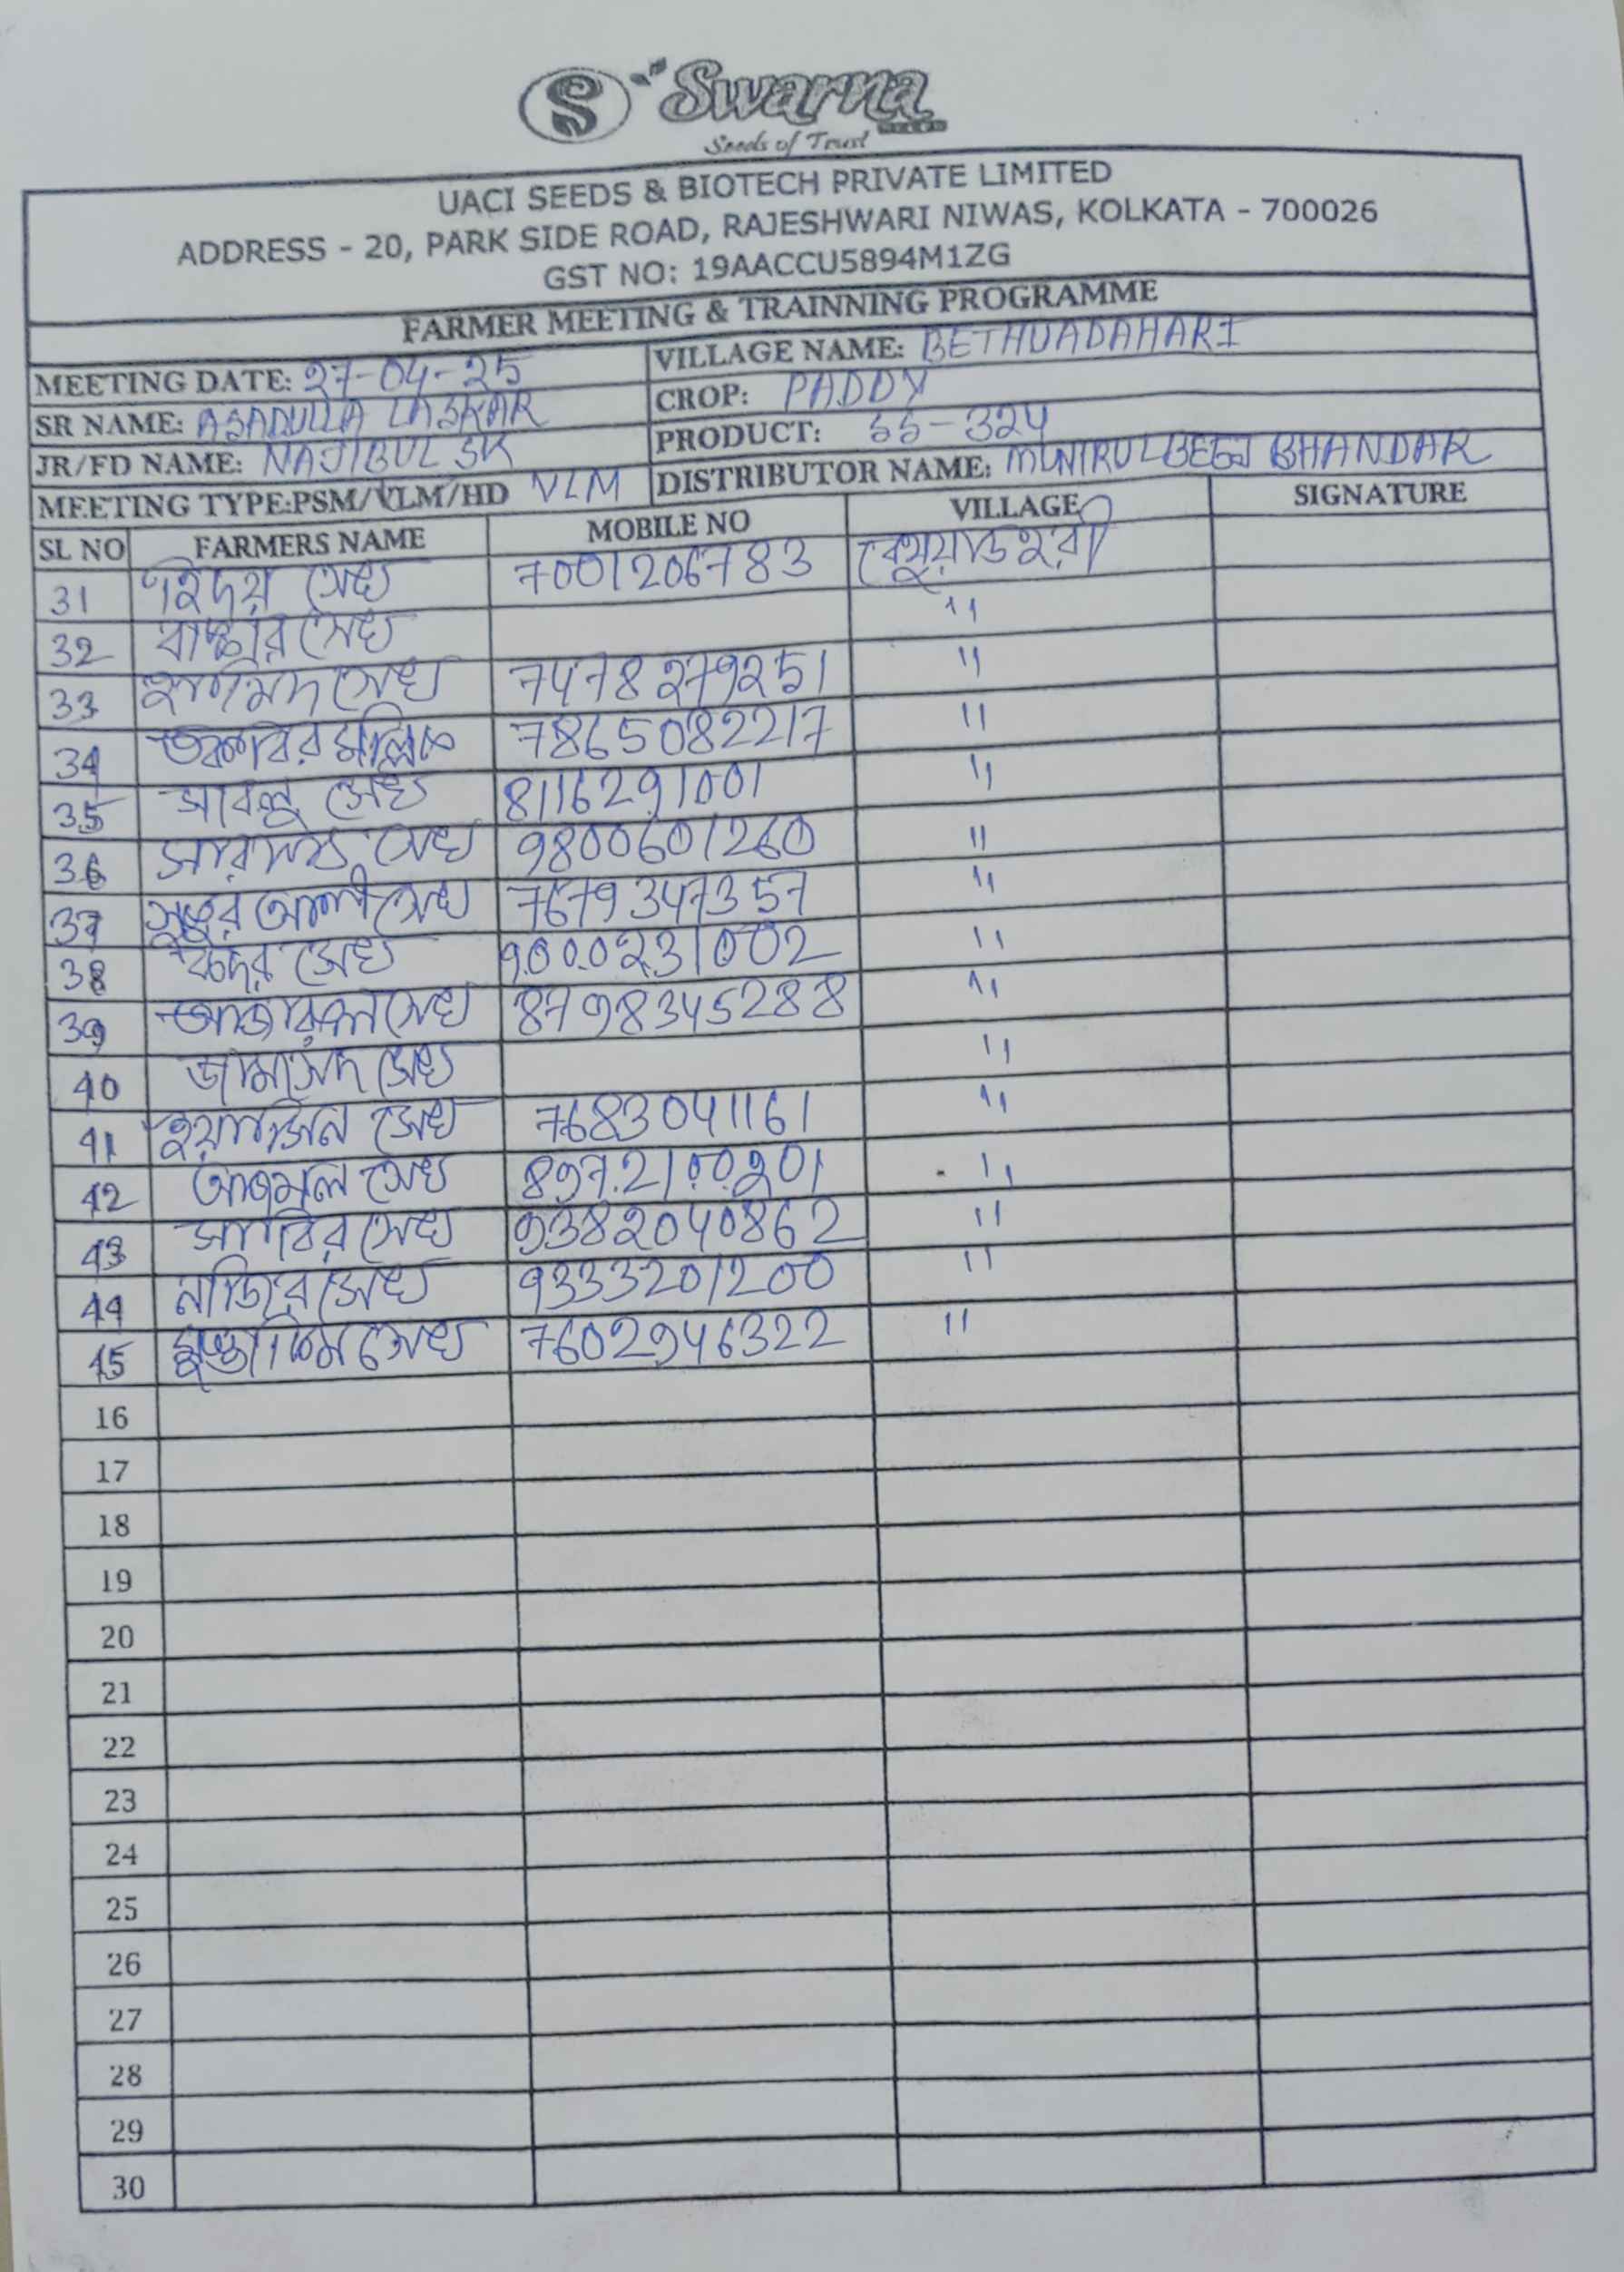 S Swarna
SEEDS
Seeds of Trust
UACI SEEDS & BIOTECH PRIVATE LIMITED
ADDRESS - 20, PARK SIDE ROAD, RAJESHWARI NIWAS, KOLKATA - 700026
GST NO: 19AACCU5894M1ZG
FARMER MEETING & TRAINNING PROGRAMME
MEETING DATE: 27-04-25 VILLAGE NAME: BETHUADAHARI
SR NAME: ASADULLA LASKAR CROP: PADDY
JR/FD NAME: NAJIBUL SK PRODUCT: SS-324
MEETING TYPE:PSM/VLM/HD VLM DISTRIBUTOR NAME: MUNIRUL BEEJ BHANDAR
SL NO FARMERS NAME MOBILE NO VILLAGE SIGNATURE
31 সেখ 7001206783
32 সেখ "
33 হামিদ সেখ 7478279251 "
34 মল্লিক 7865082217 "
35 সাবলু সেখ 8116291001 "
36 সেখ 9800601260 "
37 সেখ 7679347357 "
38 সেখ 9000231002 "
39 সেখ 8798345288 "
40 জামসেদ সেখ "
41 ইয়াসিন সেখ 7683041161 "
42 আজমল সেখ 8972100201 "
43 সাবির সেখ 9382040862 "
44 নাজির সেখ 9333201200 "
45 সেখ 7602946322 "
16
17
18
19
20
21
22
23
24
25
26
27
28
29
30